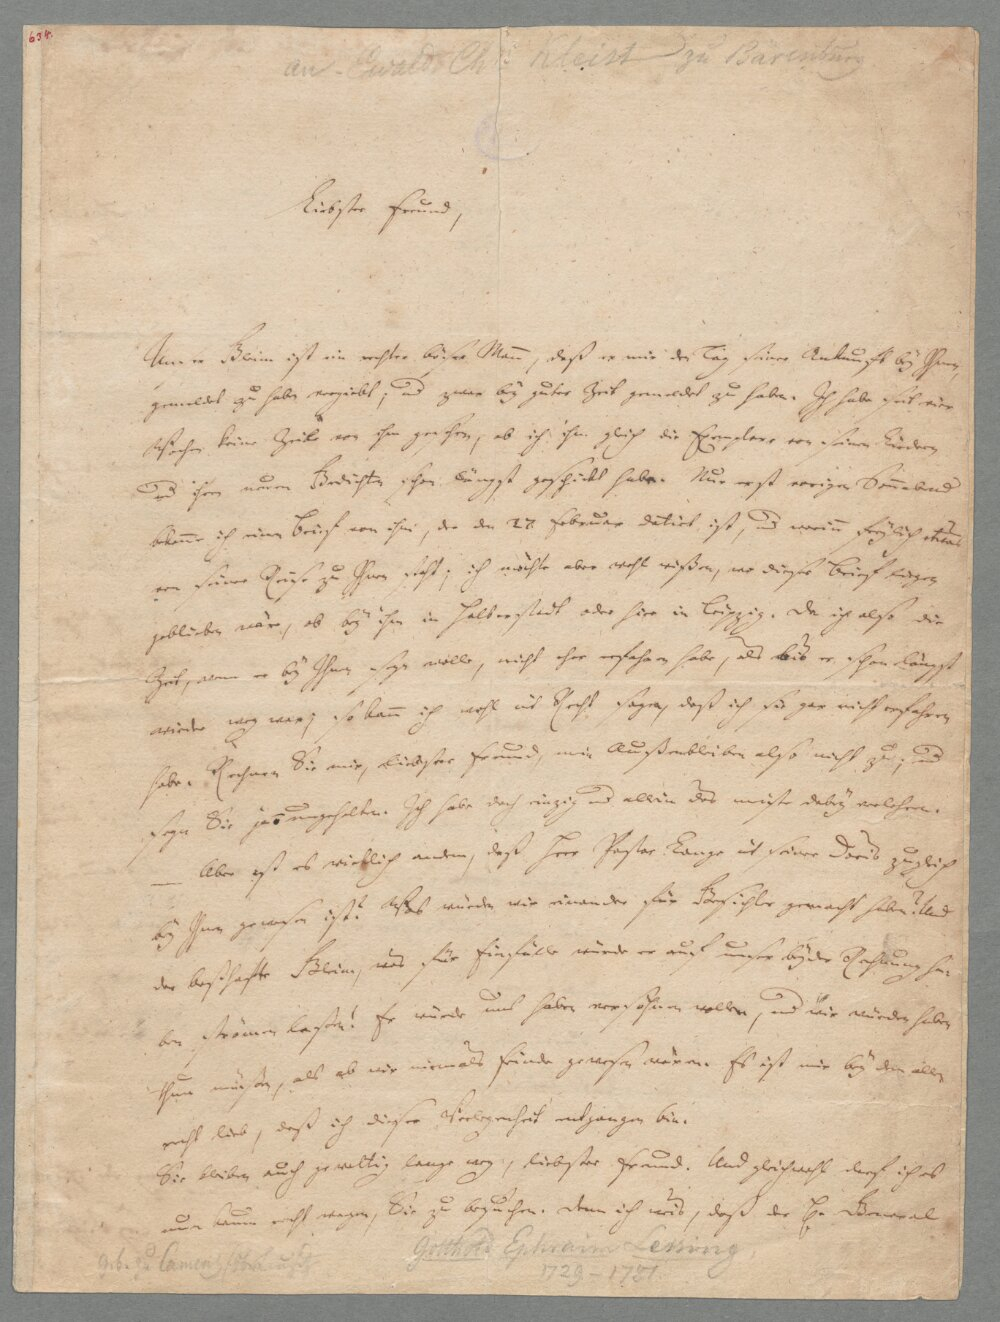 634.
an Ewald Chr. Kleist zu Bärenburg
Liebster Freund,
Unser Gleim ist ein rechter böser Mann, daß er mir den Tag seiner Ankunft bey Ihnen,
gemeldet zu haben vorgiebt, und zwar bey guter Zeit gemeldet zu haben. Ich habe seit vier
Wochen keine Zeile von ihm gesehen, ob ich ihm gleich die Exemplare von seinen Liedern
und ihren neuen Gedichten schon längst geschickt habe. Nur erst vorigen Sonnabend
bekomme ich einen Brief von ihm, der den 27 Februar datirt ist, und worinn freylich etwas
von seiner Reise zu Ihnen steht; ich möchte aber wohl wißen, wo dieser Brief liegen
geblieben wäre, ob bey ihm in Halberstadt oder hier in Leipzig. Da ich also die
Zeit, wenn er bey Ihnen seyn wolle, nicht eher erfahren habe, als bis er schon längst
wieder weg war; so kann ich wohl mit Recht sagen, daß ich sie gar nicht erfahren
habe. Rechnen Sie mir, liebster Freund, mein Außenbleiben also nicht zu; und
seyn Sie ja ungehalten. Ich habe doch einzig und allein das meiste dabey verlohren.
— Aber ist es wirklich andem, daß Herr Pastor Lange mit seiner Doris zugleich
bey Ihnen gewesen ist? Was würden wir einander für Gesichter gemacht haben! Und
der boßhafte Gleim, was für Einfälle würde er auf unser beyder Rechnung ha-
ben strömen laßen! Er würde uns haben versöhnen wollen, und wir würden haben
thun müßen, als ob wir niemals Feinde gewesen wären. Es ist mir bey dem allen
recht lieb, daß ich dieser Verlegenheit entgangen bin.
Sie bleiben auch gewaltig lange weg, liebster Freund. Und gleichwohl darf ich es
nun kaum recht wagen, Sie zu besuchen. Denn ich weis, daß der Hr. General
geb. zu Camenz
Gotthold Ephraim Lessing,
1729 – 1781